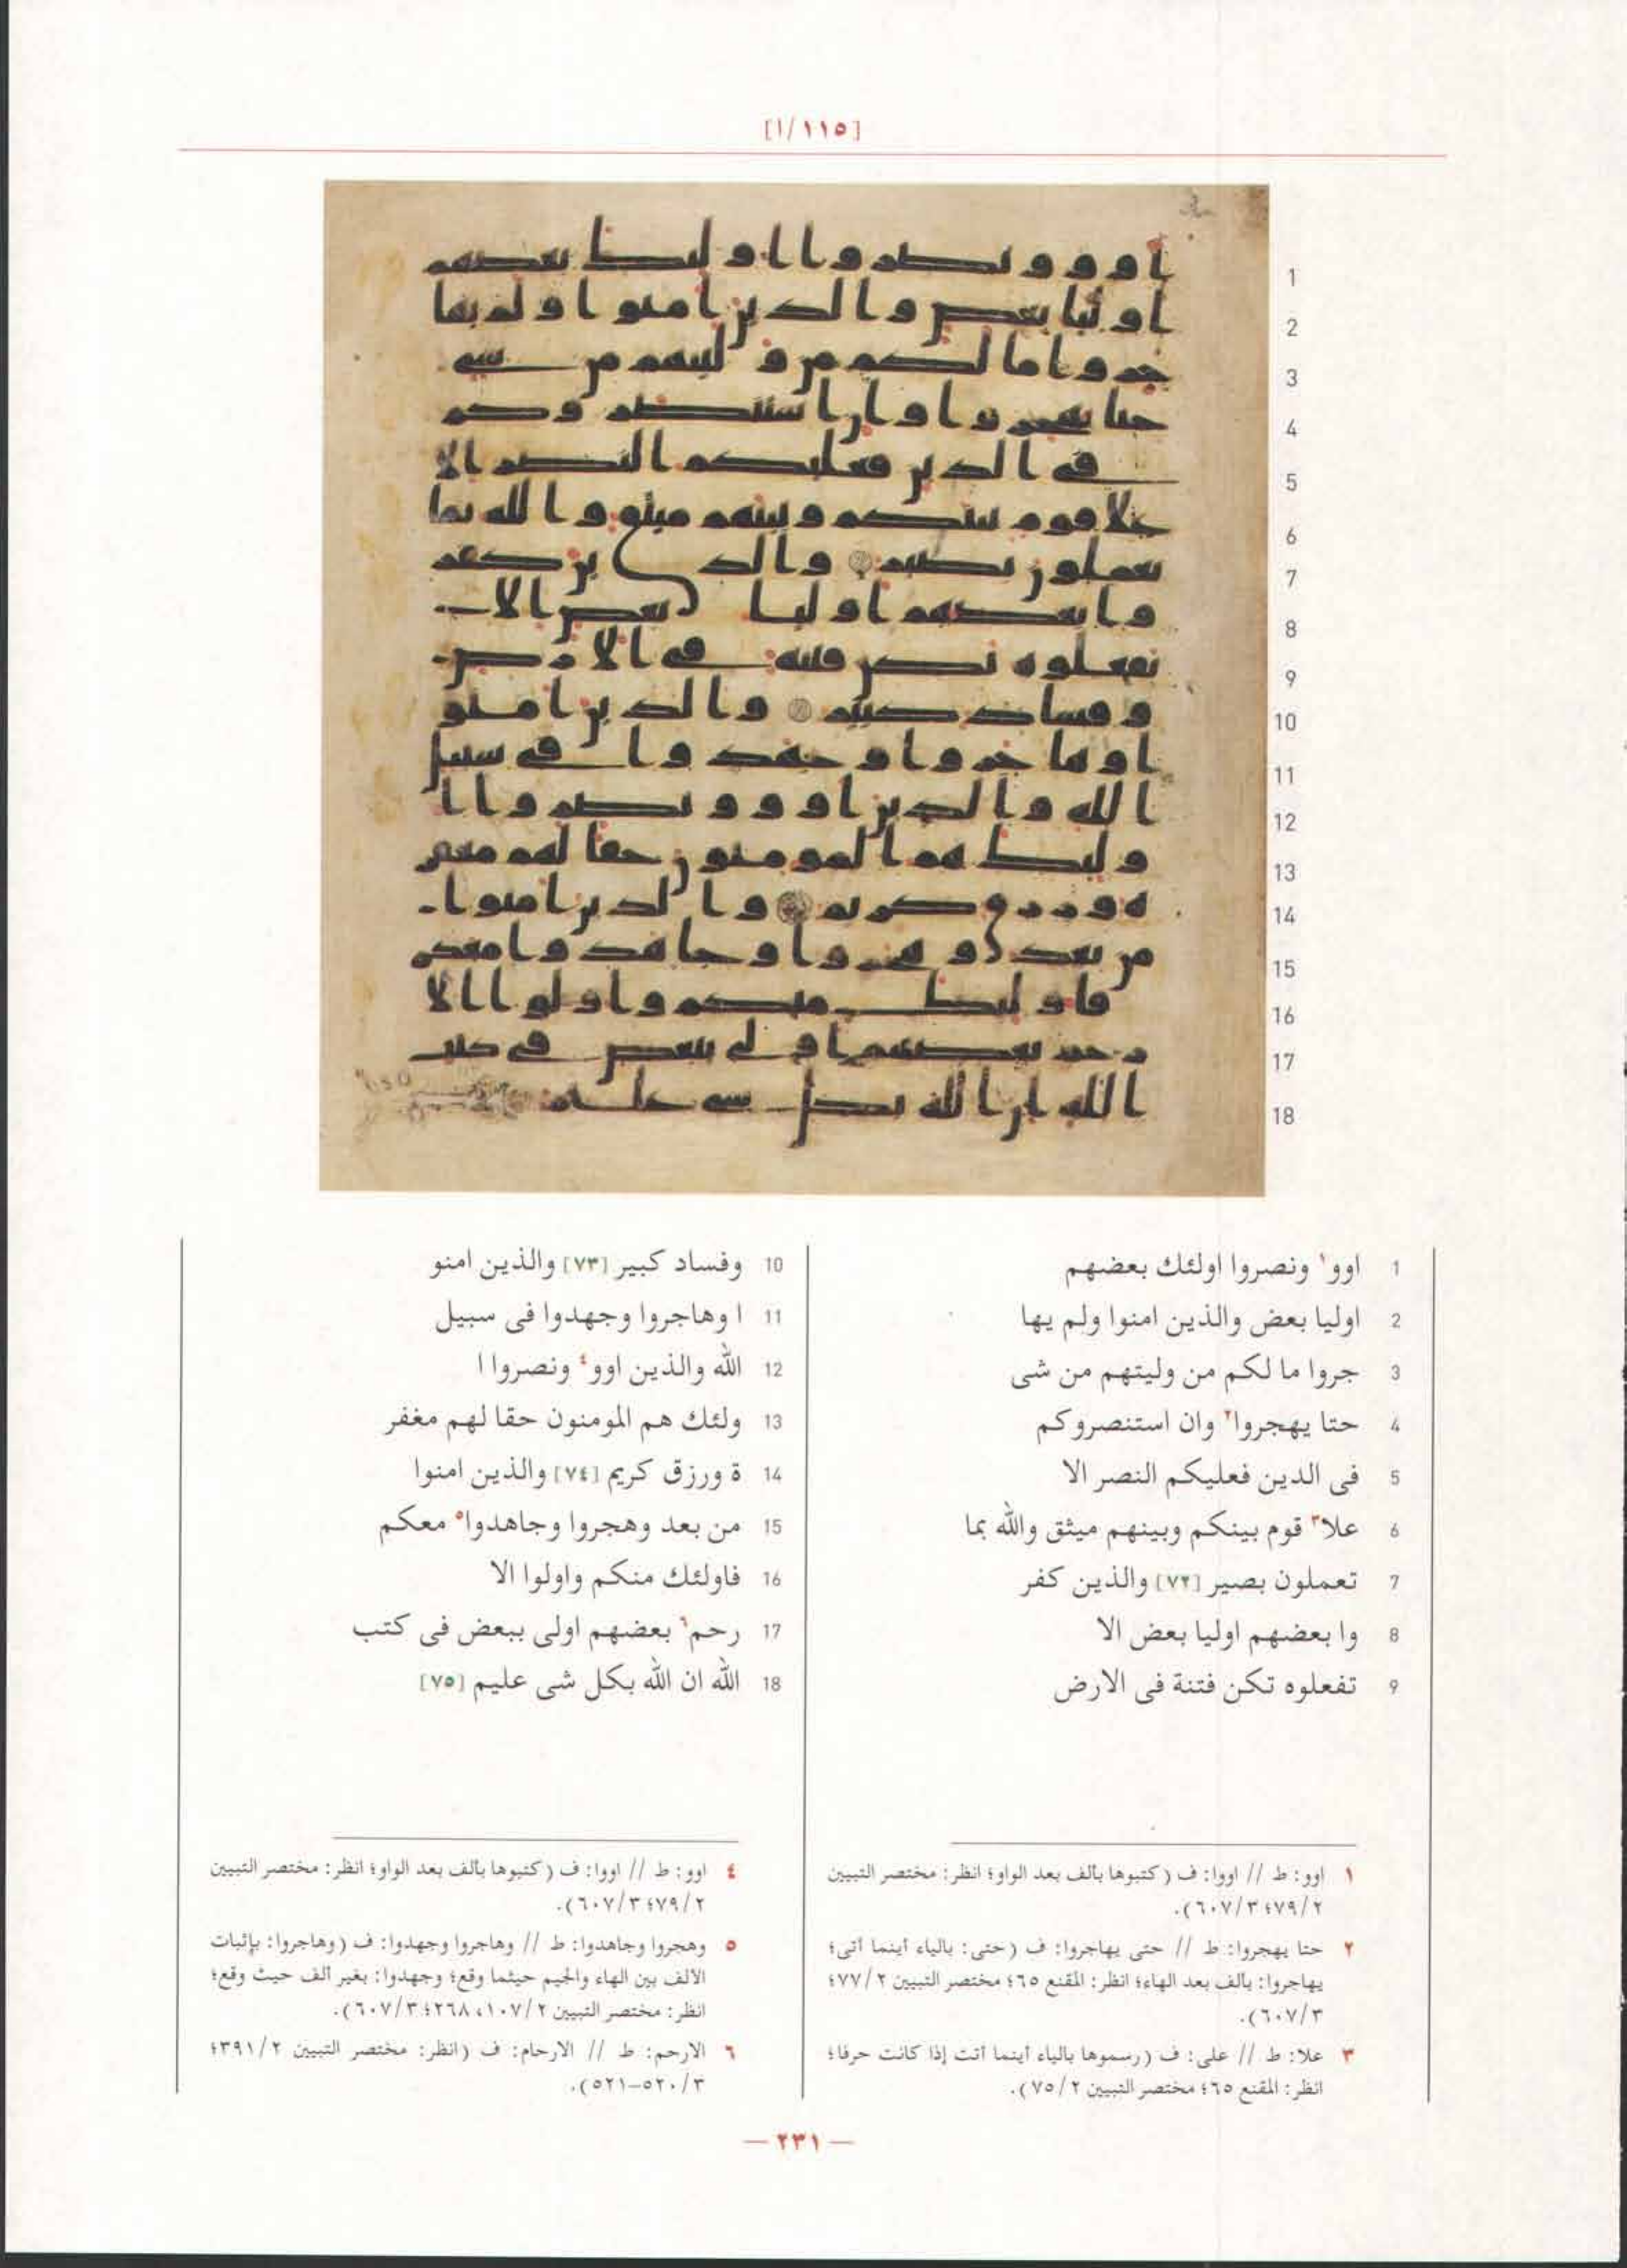 [١١٥/ا]
1
2
3
4
5
6
7
8
9
10
11
12
13
14
15
16
17
18
1 اوو١ ونصروا اولئك بعضهم
2 اوليا بعض والذين امنوا ولم يها
3 جروا ما لكم من وليتهم من شى
4 حتا يهجروا٢ وان استنصروكم
5 فى الدين فعليكم النصر الا
6 علا٣ قوم بينكم وبينهم ميثق والله بما
7 تعملون بصير [٧٢] والذين كفر
8 وا بعضهم اوليا بعض الا
9 تفعلوه تكن فتنة فى الارض
10 وفساد كبير [٧٣] والذين امنو
11 ا وهاجروا وجهدوا فى سبيل
12 الله والذين اوو٤ ونصروا ا
13 ولئك هم المومنون حقا لهم مغفر
14 ة ورزق كريم [٧٤] والذين امنوا
15 من بعد وهجروا وجاهدوا٥ معكم
16 فاولئك منكم واولوا الا
17 رحم٦ بعضهم اولى ببعض فى كتب
18 الله ان الله بكل شى عليم [٧٥]
١ اوو: ط // اووا: ف (كتبوها بألف بعد الواو؛ انظر: مختصر التبيين
٢/٧٩؛ ٣/٦٠٧).
٢ حتا يهجروا: ط // حتى يهاجروا: ف (حتى: بالياء أينما أتى؛
يهاجروا: بألف بعد الهاء؛ انظر: المقنع ٦٥؛ مختصر التبيين ٢/٧٧؛
٣/٦٠٧).
٣ علا: ط // على: ف (رسموها بالياء أينما أتت إذا كانت حرفا؛
انظر: المقنع ٦٥؛ مختصر التبيين ٢/٧٥).
٤ اوو: ط // اووا: ف (كتبوها بألف بعد الواو؛ انظر: مختصر التبيين
٢/٧٩؛ ٣/٦٠٧).
٥ وهجروا وجاهدوا: ط // وهاجروا وجهدوا: ف (وهاجروا: بإثبات
الألف بين الهاء والجيم حيثما وقع؛ وجهدوا: بغير ألف حيث وقع؛
انظر: مختصر التبيين ٢/١٠٧، ٢٦٨؛ ٣/٦٠٧).
٦ الارحم: ط // الارحام: ف (انظر: مختصر التبيين ٢/٣٩١؛
٣/٥٢٠–٥٢١).
— ٢٣١ —